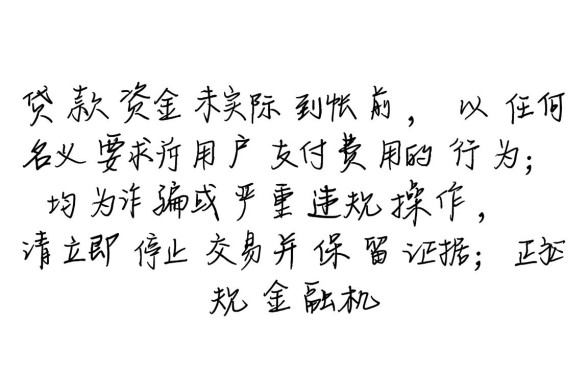 贷款资金未实际到帐前，以任何
名义要求所用户支付费用的行为；
均为诈骗或严重违规操作，
请立即停止交易并保留证据；正
规金融机